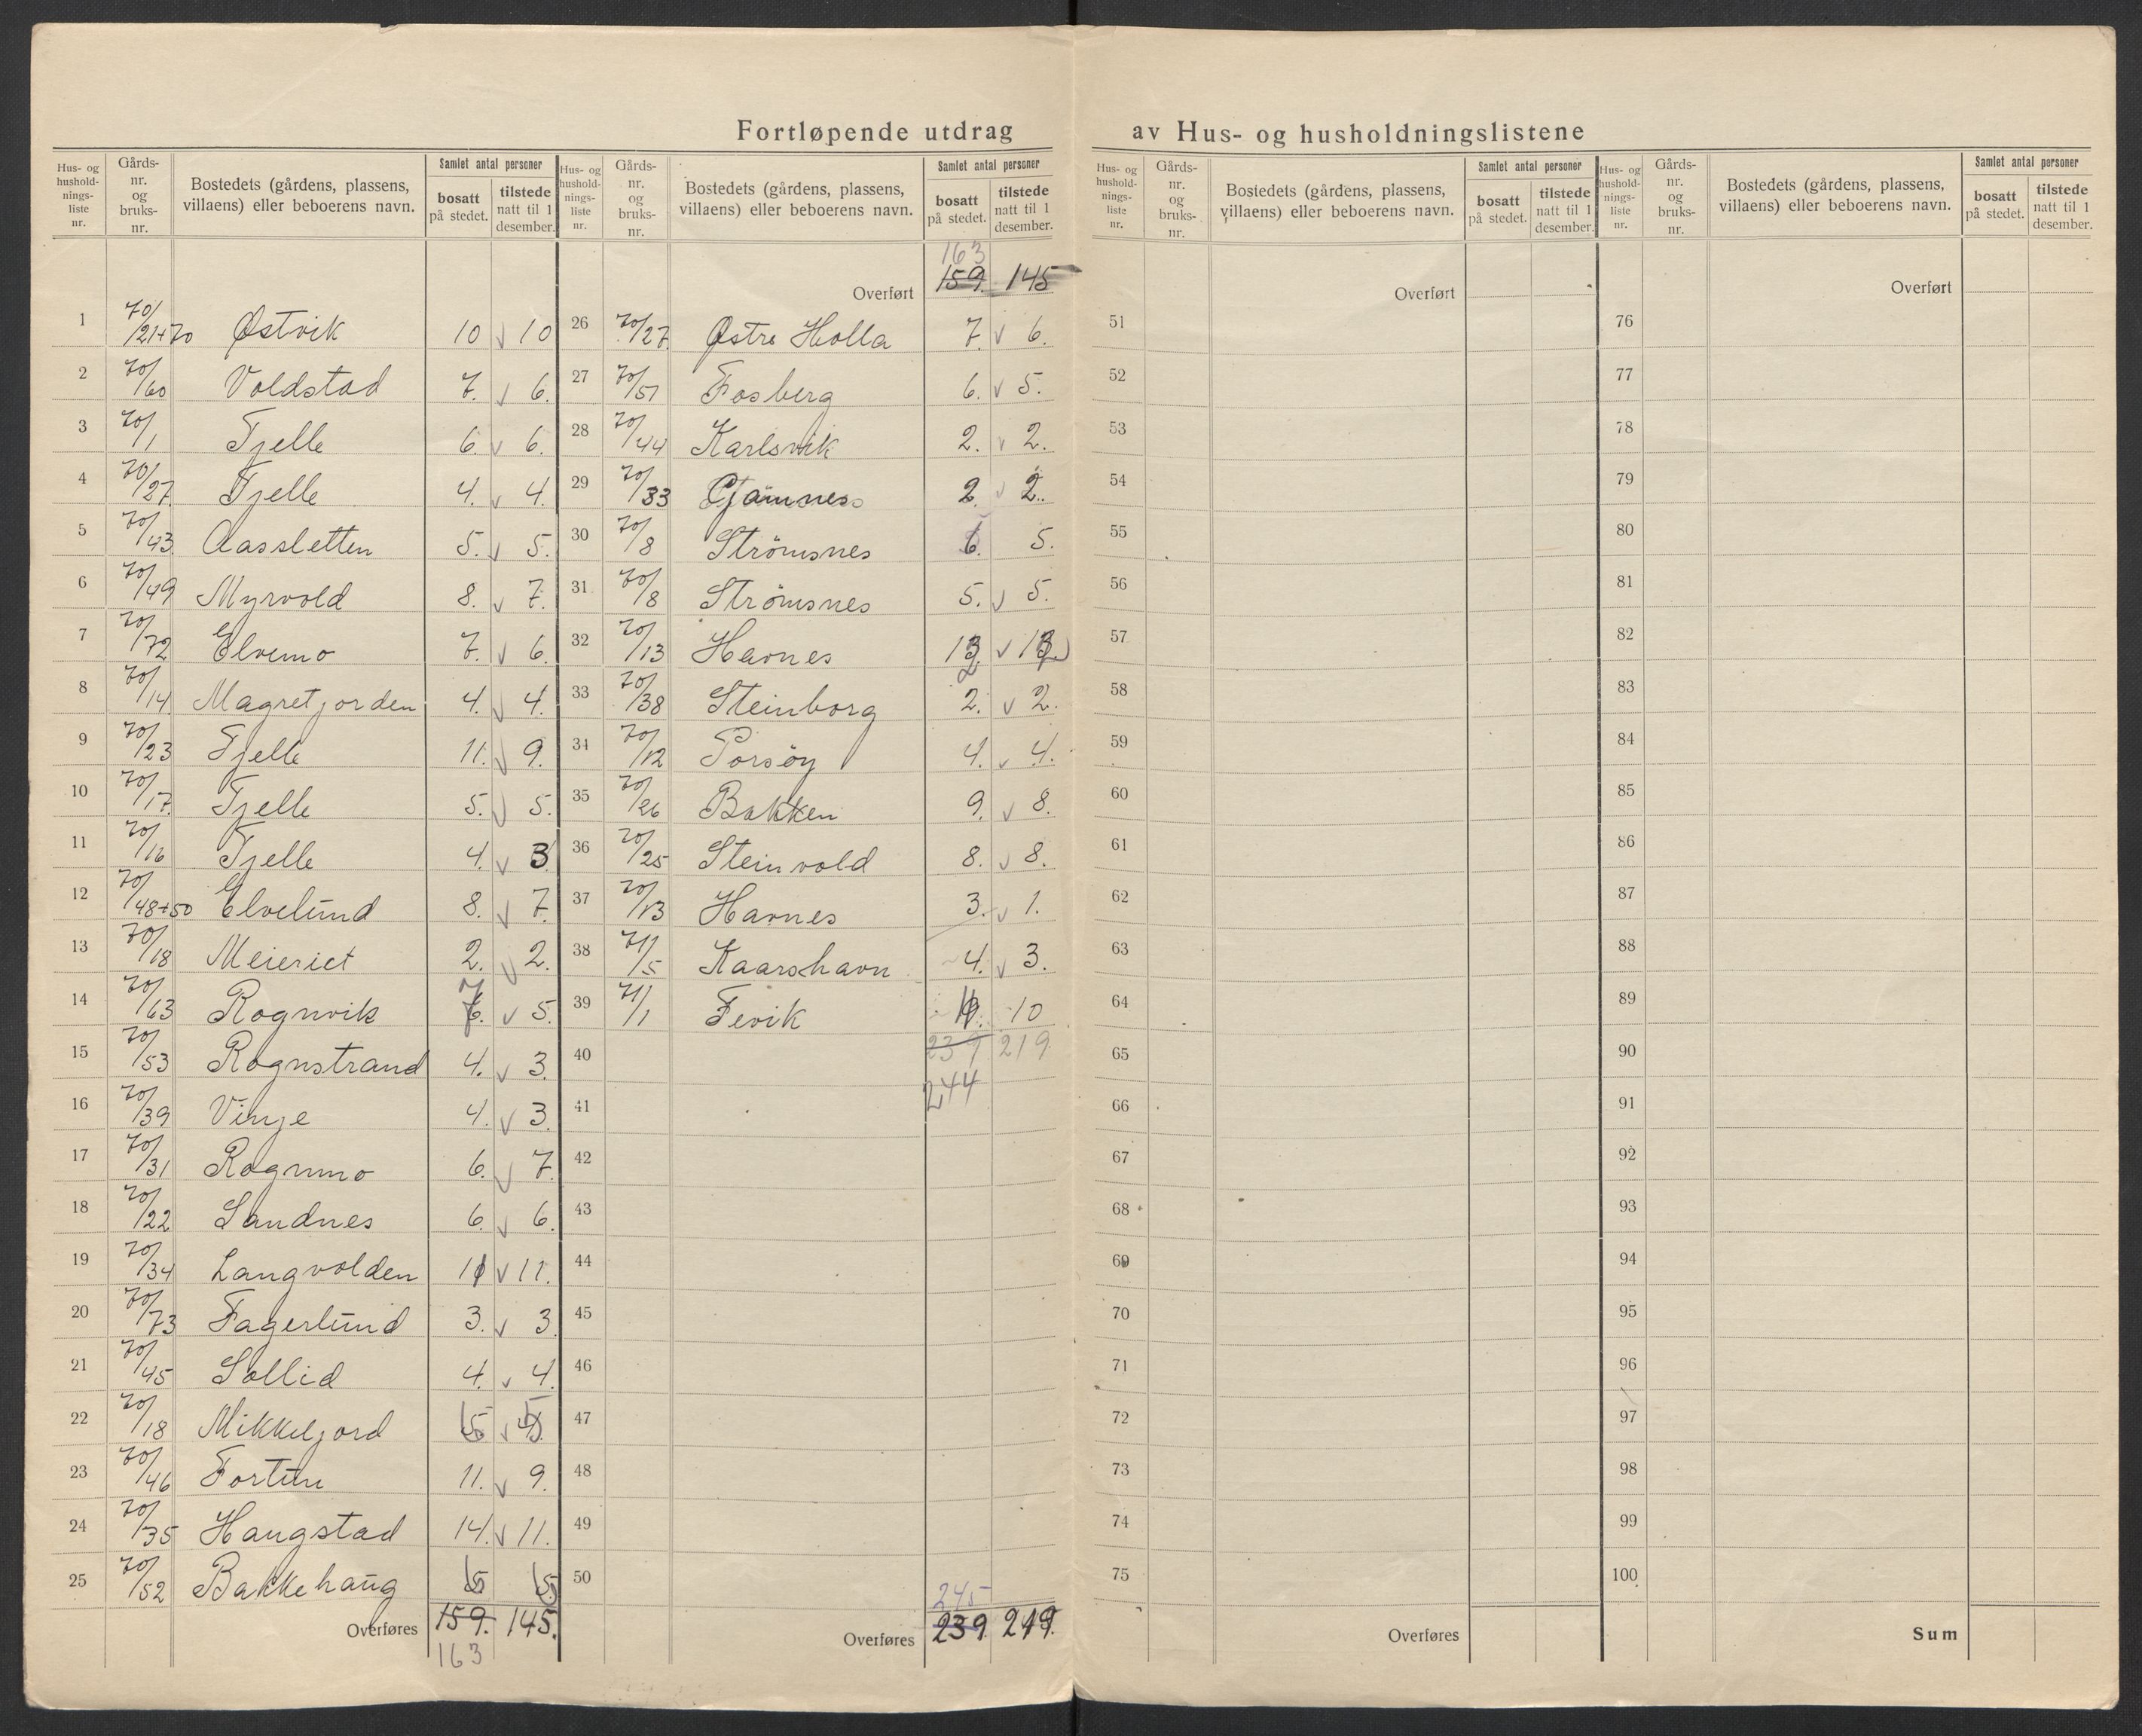 Fortløpende utdrag av Hus- og husholdningslistene
Hus- og hushold-nings-liste nr. | Gårds-nr. og bruks-nr. | Bostedets (gårdens, plassens, villaens) eller beboerens navn. | Samlet antal personer | bosatt på stedet. | tilstede natt til 1 desember.
1 70/21+70 Østvik 10 v 10
2 70/60 Voldstad 7. v 6.
3 70/1 Tjelle 6. v 6.
4 70/27. Tjelle 4. v 4.
5 70/43 Aassletten 5. v 5.
6 70/49 Myrvold 8. v 7.
7 70/72 Elvemo 7. v 6.
8 70/14. Magretjorden 4. v 4.
9 70/23 Tjelle 11. v 9.
10 70/17. Tjelle 5. v 5.
11 70/16 Tjelle 4. v 3
12 70/48+50 Elvelund 8. v 7.
13 70/18 Meieriet 2. v 2.
14 70/63 Rognvik 7 v 5.
15 70/53 Rognstrand 4. v 3.
16 70/39 Vinje 4. v 3.
17 70/31 Rognmo 6. v 7.
18 70/22 Sandnes 6. v 6.
19 70/34 Langvolden v 11.
20 70/73 Fagerlund 3. v 3.
21 70/45 Sollid 4. v 4.
22 70/18 Mikkeljord v
23 70/46 Fortun 11. v 9.
24 70/35 Haugstad 14. v 11.
25 70/52 Bakkehaug
Overføres 159. 145.
163
Hus- og hushold-nings-liste nr. | Gårds-nr. og bruks-nr. | Bostedets (gårdens, plassens, villaens) eller beboerens navn. | Samlet antal personer | bosatt på stedet. | tilstede natt til 1 desember.
163
Overført 159. 145
26 70/27. Østre Holla 7. v 6.
27 70/51 Fosberg 6. v 5.
28 70/44 Karlsvik 2. v 2.
29 70/33 2. v 2.
30 70/8 Strömsnes 6. 5.
31 70/8 Strömsnes 5. v 5.
32 70/13 Havnes v
33 70/38 Steinborg 2. v 2.
34 70/12 Porsöy 4. v 4.
35 70/26 Bakken 9. v 8.
36 70/25 Steinvold 8. v 8.
37 70/13 Havnes 3. v 1.
38 71/5 Kaarshavn 4. v 3.
39 71/1 Fevik 10
40 239 219
244
41
42
43
44
45
46
47
48
49
50
245
Overføres 239. 219.
Hus- og hushold-nings-liste nr. | Gårds-nr. og bruks-nr. | Bostedets (gårdens, plassens, villaens) eller beboerens navn. | Samlet antal personer | bosatt på stedet. | tilstede natt til 1 desember.
Overført
51
52
53
54
55
56
57
58
59
60
61
62
63
64
65
66
67
68
69
70
71
72
73
74
75
Overføres
Hus- og hushold-nings-liste nr. | Gårds-nr. og bruks-nr. | Bostedets (gårdens, plassens, villaens) eller beboerens navn. | Samlet antal personer | bosatt på stedet. | tilstede natt til 1 desember.
Overført
76
77
78
79
80
81
82
83
84
85
86
87
88
89
90
91
92
93
94
95
96
97
98
99
100
Sum